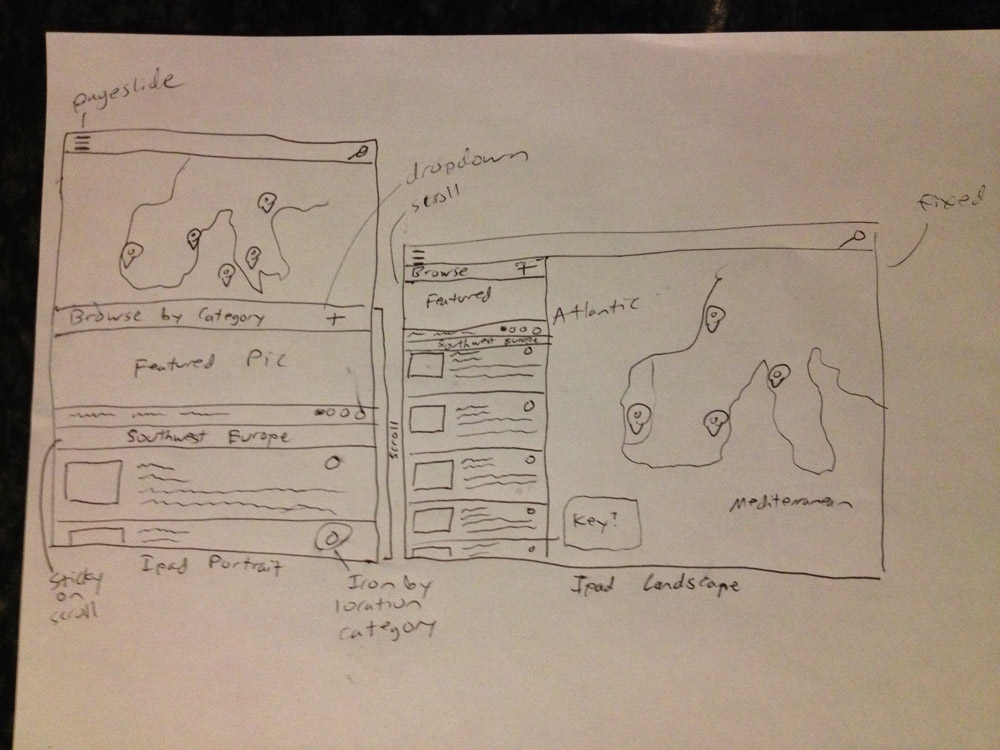 pageslide
dropdown
scroll
fixed
Browse by Category +
Featured Pic
Southwest Europe
scroll
Ipad Portrait
Sticky
on
scroll
Icon by
location
category
Browse
Featured
Southwest Europe
Atlantic
Mediterranean
Key?
Ipad Landscape